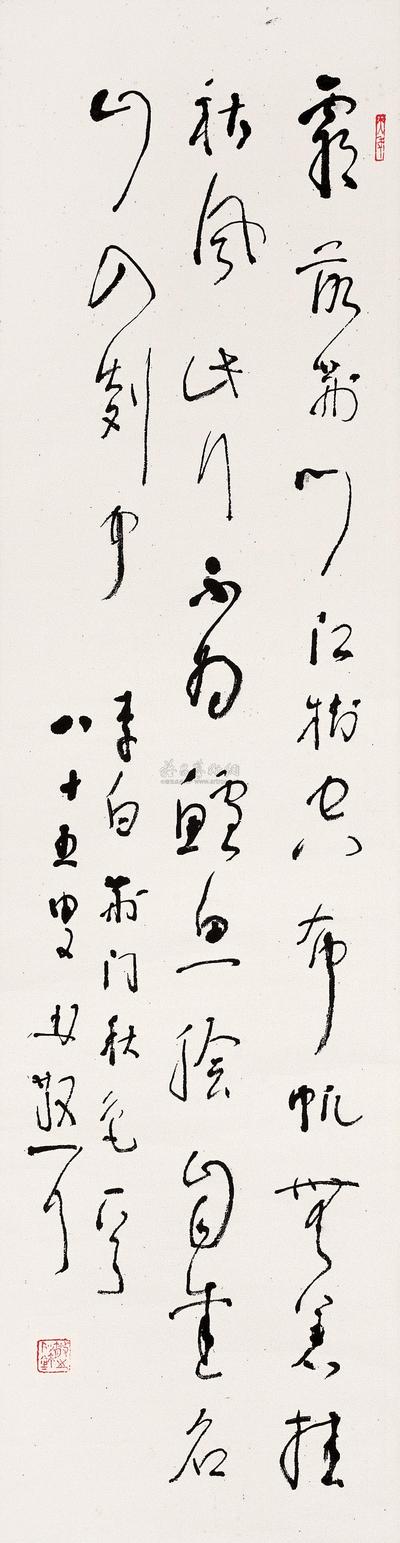 霜落荆门江树空布帆無恙挂
秋风此行不为鲈鱼脍自爱名
山入剡中
李白荆门秋色
八十五叟 散耳